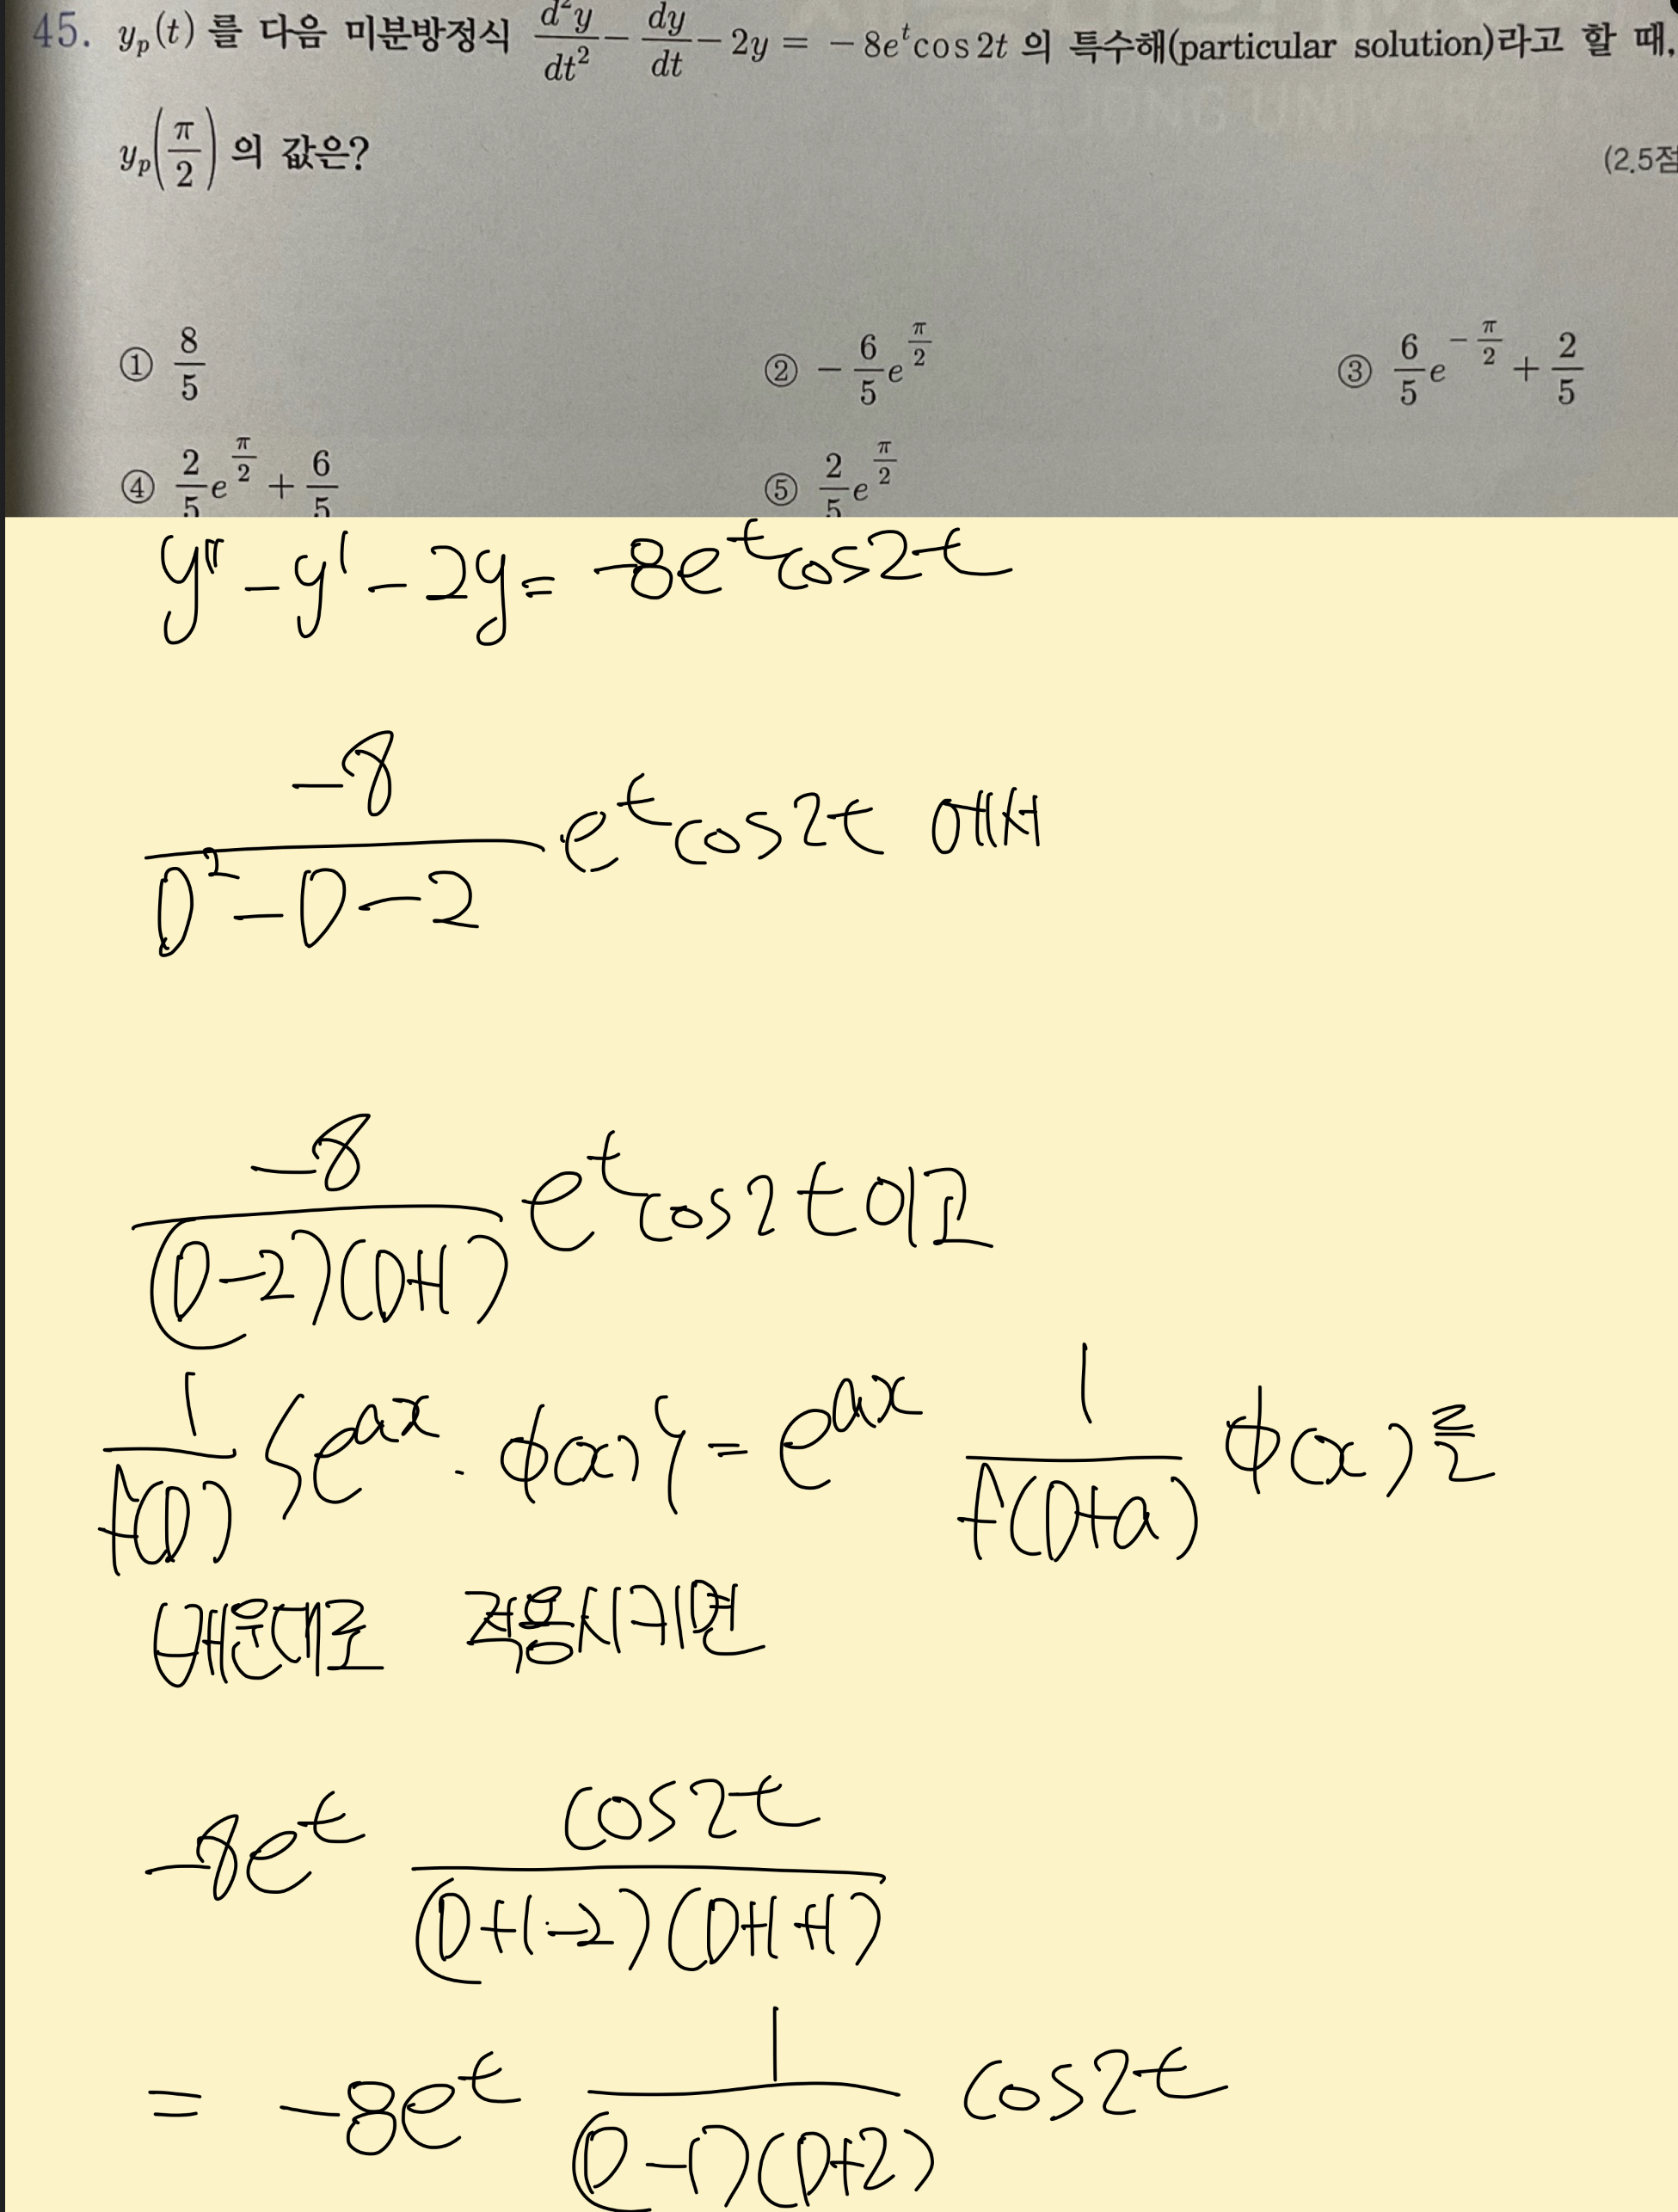 45. y_p(t) 를 다음 미분방정식 d²y/dt² - dy/dt - 2y = -8e^t cos 2t 의 특수해(particular solution)라고 할 때,
y_p(π/2) 의 값은?
(2.5점
① 8/5
② -6/5 e^(π/2)
③ 6/5 e^(-π/2) + 2/5
④ 2/5 e^(π/2) + 6/5
⑤ 2/5 e^(π/2)
y'' - y' - 2y = -8e^t cos2t
-8/(D² - D - 2) e^t cos2t 에서
-8/((D-2)(D+1)) e^t cos2t 이고
1/f(D) {e^(ax) · φ(x)} = e^(ax) 1/f(D+a) φ(x) 를
배운대로 적용시키면
-8e^t cos2t/((D+1-2)(D+1+1))
= -8e^t 1/((D-1)(D+2)) cos2t